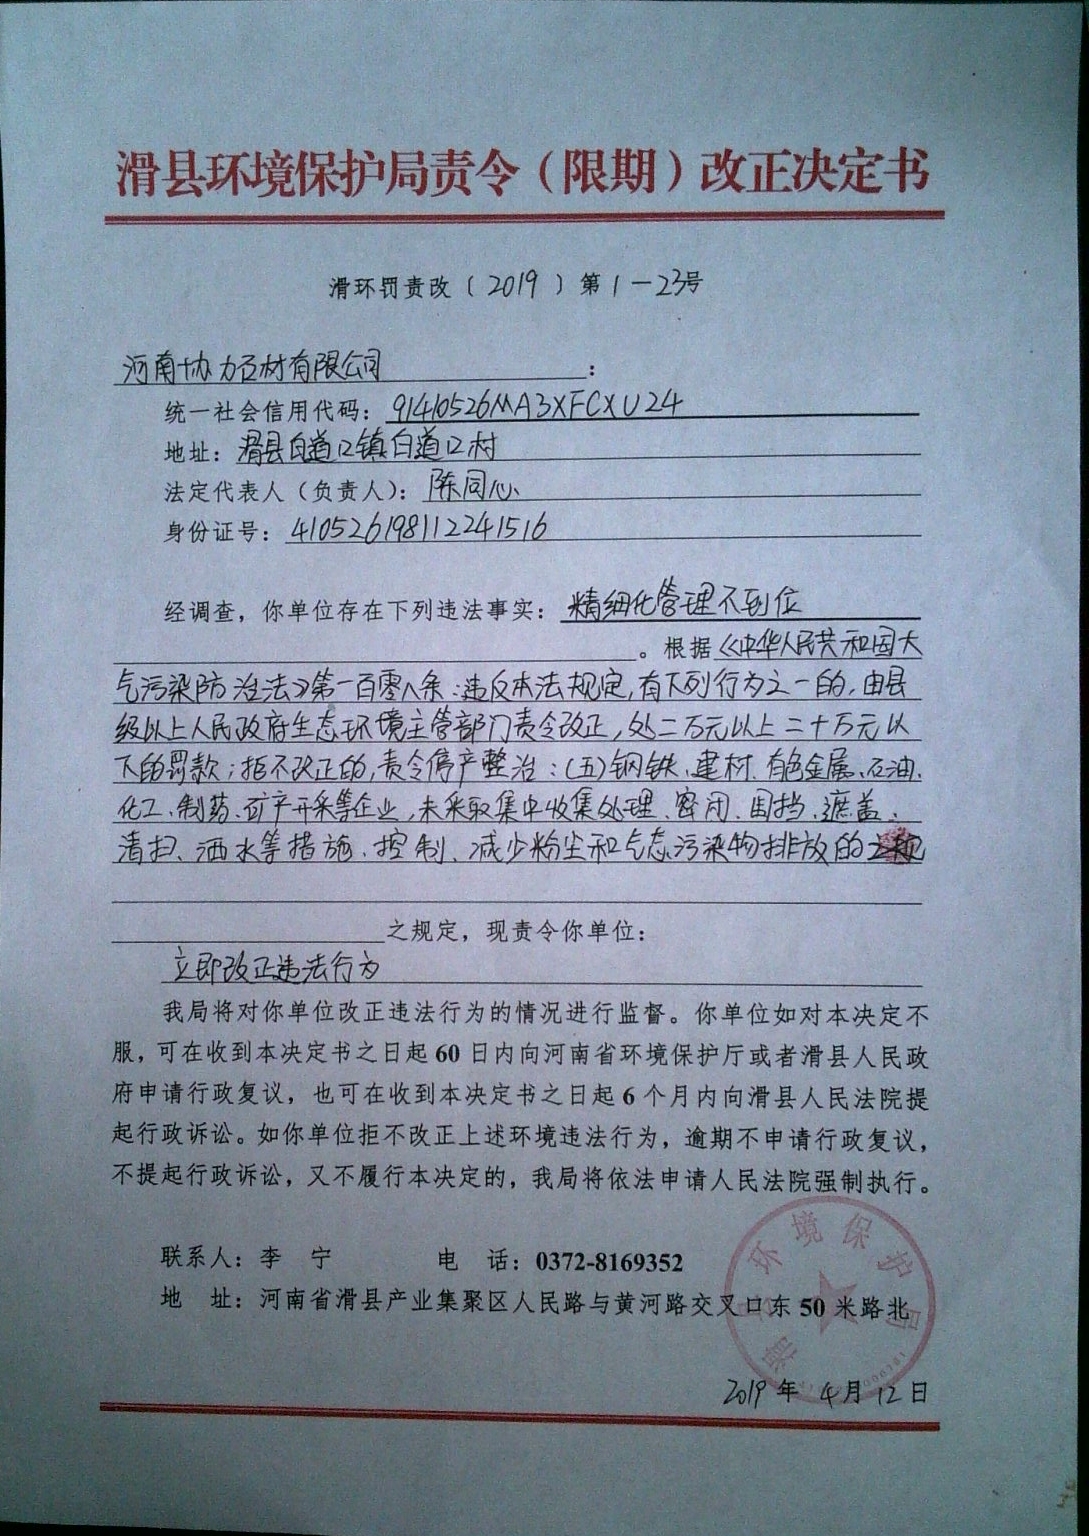 滑县环境保护局责令（限期）改正决定书
滑环罚责改〔2019〕第1-23号
河南协力石材有限公司：
统一社会信用代码：91410526MA3XFCXU24
地址：滑县白道口镇白道口村
法定代表人（负责人）：陈同心
身份证号：410526198112241516
经调查，你单位存在下列违法事实：精细化管理不到位
。根据《中华人民共和国大
气污染防治法》第一百零八条：违反本法规定，有下列行为之一的，由县
级以上人民政府生态环境主管部门责令改正，处二万元以上二十万元以
下的罚款；拒不改正的，责令停产整治：（五）钢铁、建材、有色金属、石油、
化工、制药、矿产开采等企业，未采取集中收集处理、密闭、围挡、遮盖、
清扫、洒水等措施、控制、减少粉尘和气态污染物排放的
之规定，现责令你单位：
立即改正违法行为
我局将对你单位改正违法行为的情况进行监督。你单位如对本决定不
服，可在收到本决定书之日起60日内向河南省环境保护厅或者滑县人民政
府申请行政复议，也可在收到本决定书之日起6个月内向滑县人民法院提
起行政诉讼。如你单位拒不改正上述环境违法行为，逾期不申请行政复议，
不提起行政诉讼，又不履行本决定的，我局将依法申请人民法院强制执行。
联系人：李 宁 电 话：0372-8169352
地 址：河南省滑县产业集聚区人民路与黄河路交叉口东50米路北
滑县环境保护局
2019年4月12日